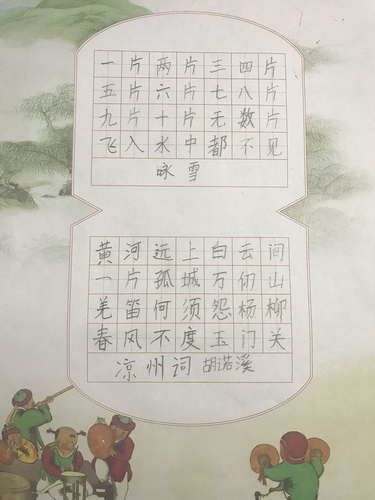 一片两片三四片
五片六片七八片
九片十片无数片
飞入水中都不见
咏雪
黄河远上白云间
一片孤城万仞山
羌笛何须怨杨柳
春风不度玉门关
凉州词 胡诺溪